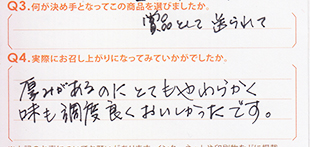 Q3.何が決め手となってこの商品を選びましたか。
賞品として 送られて
Q4.実際にお召し上がりになってみていかがでしたか。
厚みがあるのにとてもやわらかく
味も調度良くおいしかったです。